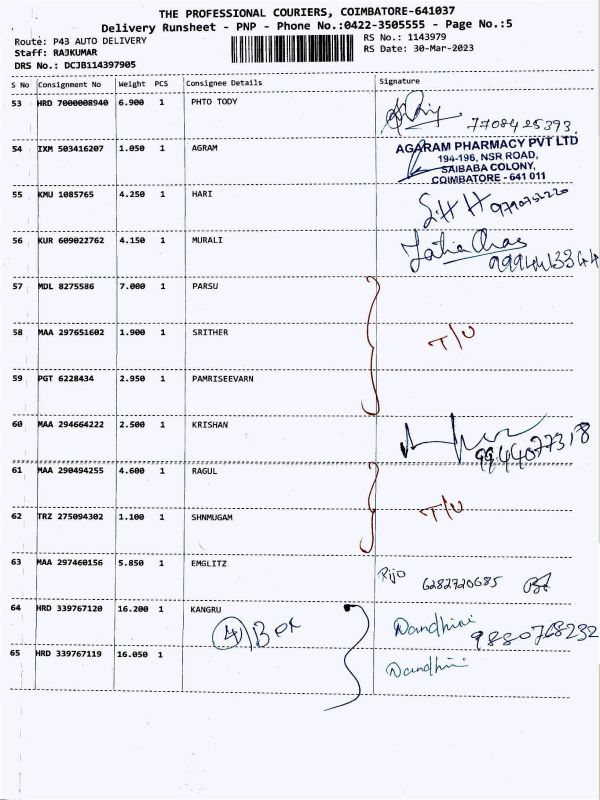 THE PROFESSIONAL COURIERS, COIMBATORE-641037
Delivery Runsheet - PNP - Phone No.:0422-3505555 - Page No.:5
Route: P43 AUTO DELIVERY RS No.: 1143979
Staff: RAJKUMAR RS Date: 30-Mar-2023
DRS No.: DCJB114397905
S No Consignment No Weight PCS Consignee Details Signature
53 HRD 7000008940 6.900 1 PHTO TODY
7708425393
54 IXM 503416207 1.050 1 AGRAM AGARAM PHARMACY PVT LTD
194-196, NSR ROAD,
SAIBABA COLONY,
COIMBATORE - 641 011
55 KMU 1085765 4.250 1 HARI
56 KUR 609022762 4.150 1 MURALI
57 MDL 8275586 7.000 1 PARSU
58 MAA 297651602 1.900 1 SRITHER T/U
59 PGT 6228434 2.950 1 PAMRISEEVARN
60 MAA 294664222 2.500 1 KRISHAN 9944077318
61 MAA 290494255 4.600 1 RAGUL
62 TRZ 275094302 1.100 1 SHNMUGAM T/U
63 MAA 297460156 5.850 1 EMGLITZ Rijo 6282720685
64 HRD 339767120 16.200 1 KANGRU Nandhini 9880768232
65 HRD 339767119 16.050 1 Nandhini